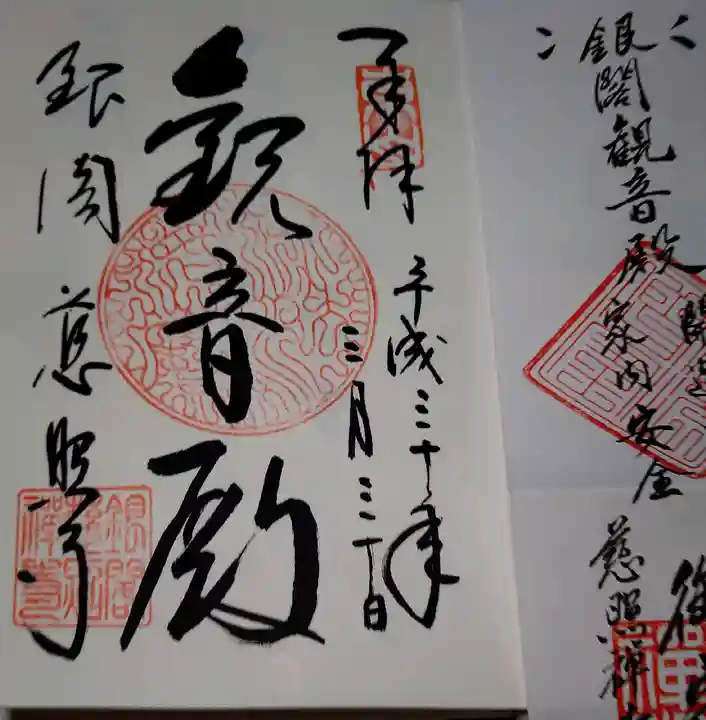 奉拝
平成三十年
三月三十日
観音殿
銀閣 慈照寺
銀閣観音殿 家内安全
開運
慈照禅